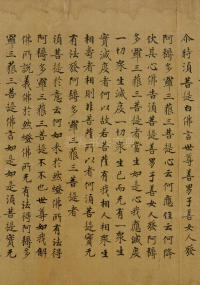 尒時須菩提白佛言世尊善男子善女人發
阿耨多羅三藐三菩提心云何應住云何降
伏其心佛告須菩提善男子善女人發阿耨
多羅三藐三菩提者當生如是心我應滅度
一切衆生滅度一切衆生已而无有一衆生
實滅度者何以故若菩薩有我相人相衆生
相壽者相則非菩薩所以者何須菩提實无
有法發阿耨多羅三藐三菩提者
須菩提於意云何如來於然燈佛所有法得
阿耨多羅三藐三菩提不不也世尊如我解
佛所說義佛於然燈佛所无有法得阿耨多
羅三藐三菩提佛言如是如是須菩提實无